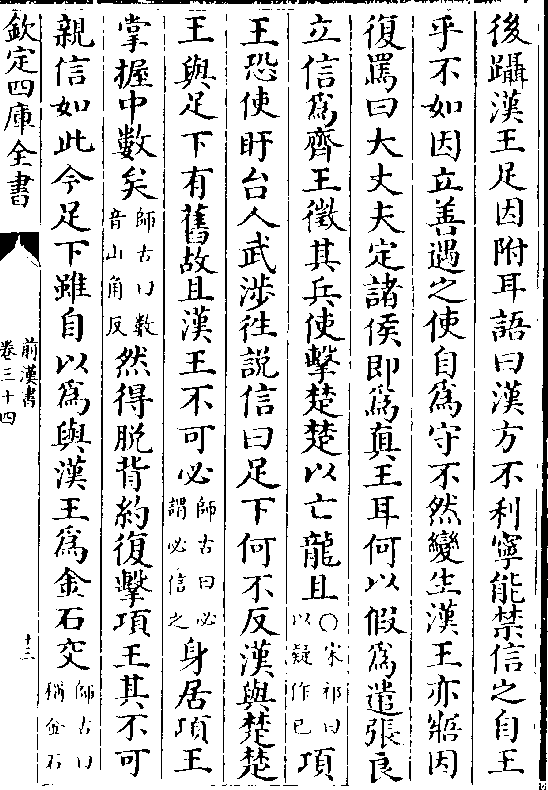 後躡漢王足因附耳語曰漢方不利寧能禁信之自王
乎不如因立善遇之使自為守不然變生漢王亦寤因
復罵曰大丈夫定諸侯即為真王耳何以假為遣張良
立信為齊王徵其兵使擊楚楚以亡龍且○宋祁曰以疑作已項
王恐使盱台人武涉往說信曰足下何不反漢與楚楚
王與足下有舊故且漢王不可必師古曰必謂必信之身居項王
掌握中數矣師古曰數音山角反然得脫背約復擊項王其不可
親信如此今足下雖自以為與漢王為金石交師古曰稱金石
欽定四庫全書
前漢書
卷三十四
十三